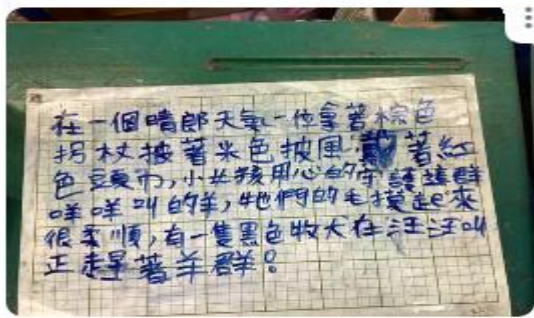 在一個晴郎天氣一位拿著棕色
拐杖披著米色披風,戴著紅
色頭巾,小女孩用心的守護這群
咩咩叫的羊,牠們的毛摸起來
很柔順,有一隻黑色牧犬在汪汪叫
正趕著羊群!